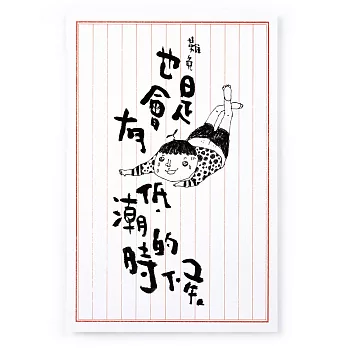 難免
是
也會有
低潮
的時候。